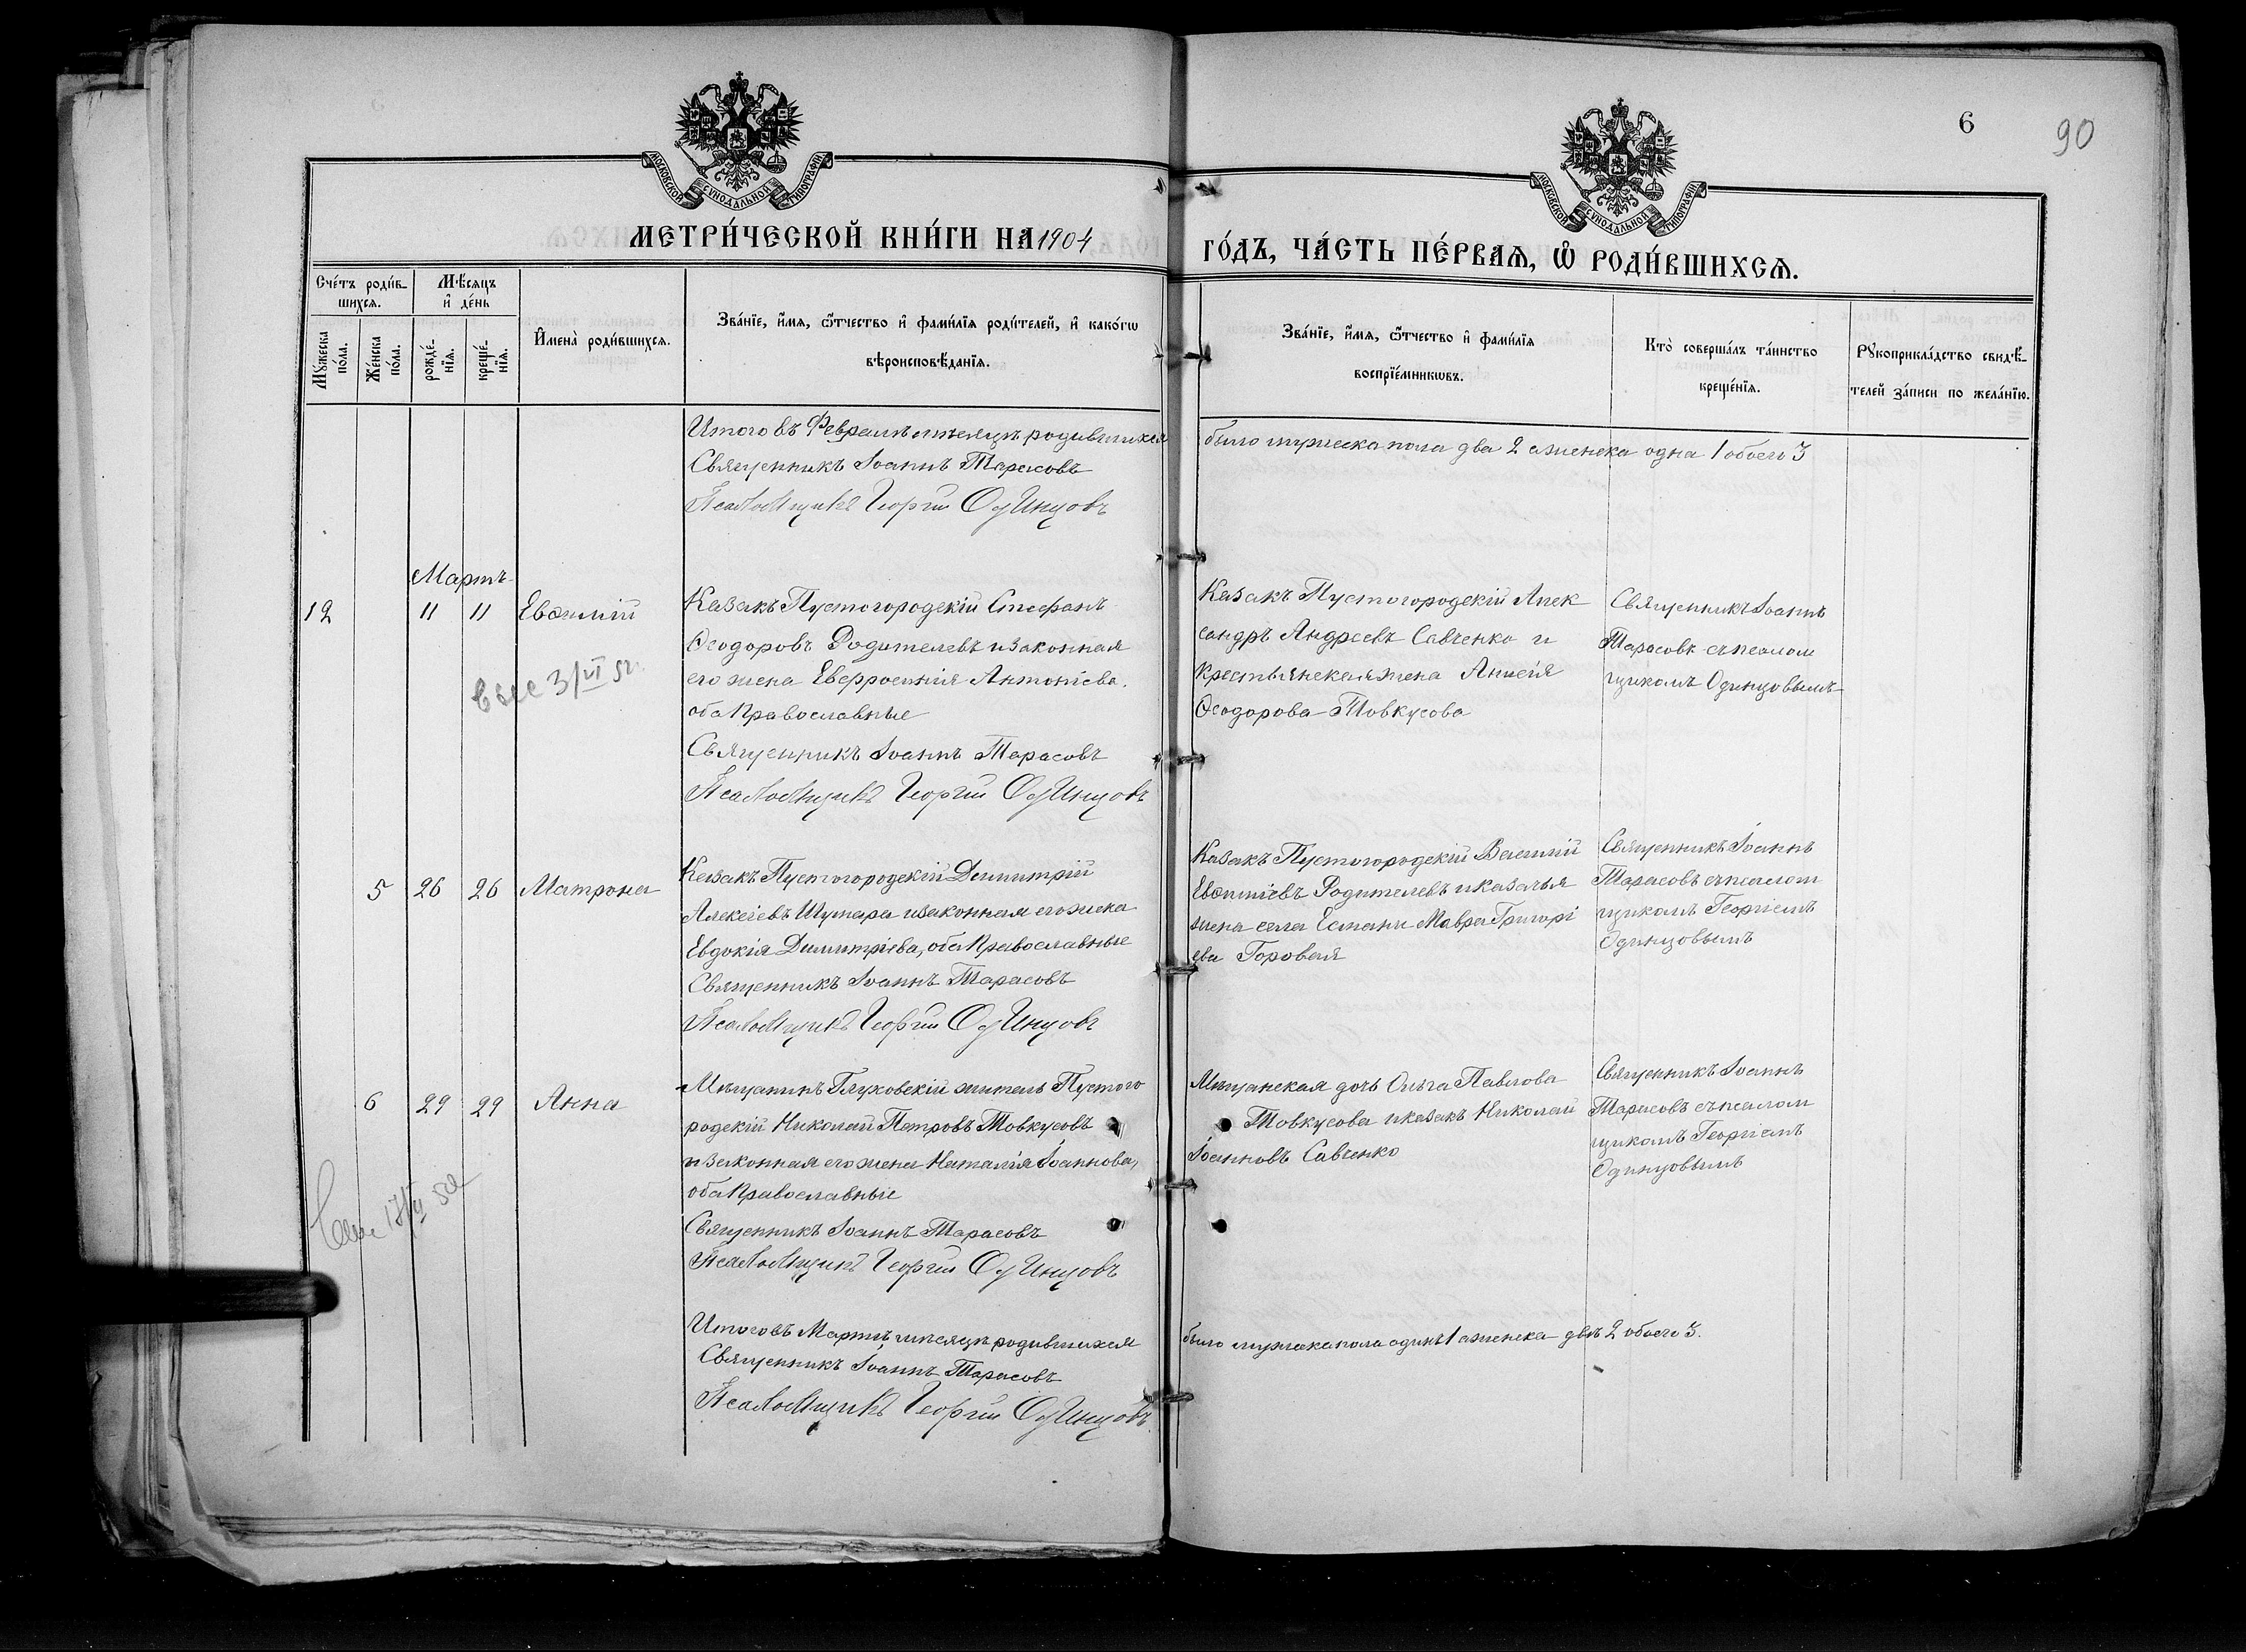 6
90
МОСКОВСКОЙ СУНОДАЛЬНОЙ ТИПОГРАФІИ
МОСКОВСКОЙ СУНОДАЛЬНОЙ ТИПОГРАФІИ
МЕТРИ́ЧЕСКОЙ КНИ́ГИ НА 1904
ГО́ДЪ, ЧА́СТЬ ПЕ́РВАѦ, Ѡ РОДИ́ВШИХСѦ.
Сче́тъ роди́в-
шихсѧ.
Мѣ́сѧцъ
и҆ де́нь
Мꙋ́жеска
по́ла.
Же́нска
по́ла.
рожде́-
нїѧ.
креще́-
нїѧ.
И҆мена̀ роди́вшихсѧ.
Зва́нїе, и҆́мѧ, ѻ҆́тчество и҆ фами́лїѧ роди́телей, и҆ како́гѡ
вѣроисповѣ́данїѧ.
Зва́нїе, и҆́мѧ, ѻ҆́тчество и҆ фами́лїѧ
воспрїе́мникѡвъ.
Кто̀ соверша́лъ та́инство
креще́нїѧ.
Рꙋкоприкла́дство свидѣ́-
телей за́писи по жела́нїю.
Итого въ Февралѣ мѣсяцѣ родившихся
было мужеска пола два 2 а женска одна 1 обоего 3
Священникъ Іоаннъ Тарасовъ
Псаломщикъ Георгій Одинцовъ
Мартъ
12 11 11 Евѳимій
Казакъ Пустогородскій Стефанъ
Ѳеодоровъ Родителевъ и законная
его жена Евфросинія Антоніева,
оба Православные
Священникъ Іоаннъ Тарасовъ
Псаломщикъ Георгій Одинцовъ
Казакъ Пустогородскій Алек
сандръ Андреевъ Савченко и
крестьянская жена Анисія
Ѳеодорова Товкусова
Священникъ Іоаннъ
Тарасовъ съ псалом
щикомъ Одинцовымъ
3/VI 52
5 26 26 Матрона
Казакъ Пустогородскій Димитрій
Алексіевъ Шумара и законная его жена
Евдокія Димитріева, оба Православные
Священникъ Іоаннъ Тарасовъ
Псаломщикъ Георгій Одинцовъ
Казакъ Пустогородскій Василій
Евѳиміевъ Родителевъ и казачья
жена села Есмани Мавра Григорі
ева Горовая
Священникъ Іоаннъ
Тарасовъ съ псалом
щикомъ Георгіемъ
Одинцовымъ
6 29 29 Анна
Мѣщанинъ Глуховскій житель Пустого
родскій Николай Петровъ Товкусовъ
и законная его жена Наталія Іоаннова,
оба Православные
Священникъ Іоаннъ Тарасовъ
Псаломщикъ Георгій Одинцовъ
Мѣщанская дочь Ольга Павлова
Товкусова и казакъ Николай
Іоанновъ Савченко
Священникъ Іоаннъ
Тарасовъ съ псалом
щикомъ Георгіемъ
Одинцовымъ
Итого въ Мартѣ мѣсяцѣ родившихся
было мужеска пола одинъ 1 а женска двѣ 2 обоего 3.
Священникъ Іоаннъ Тарасовъ
Псаломщикъ Георгій Одинцовъ